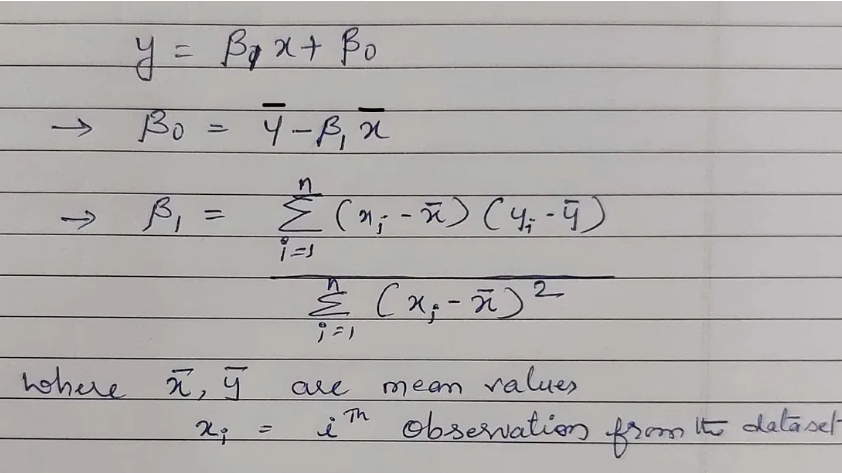 y = β₁ x + β₀
→ β₀ = ȳ - β₁ x̄
→ β₁ = n
Σ (xᵢ - x̄) (yᵢ - ȳ)
i=1
n
Σ (xᵢ - x̄)²
i=1
where x̄, ȳ are mean values
xᵢ = iᵀʰ observation from the dataset